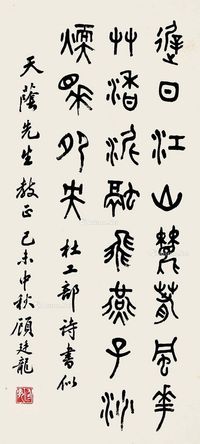 遲日江山麗萅風華
艸香泥融飛燕子沙
煖睡夗央 杜工部詩書似
天蔭先生教正 己未中秋 顧廷龍